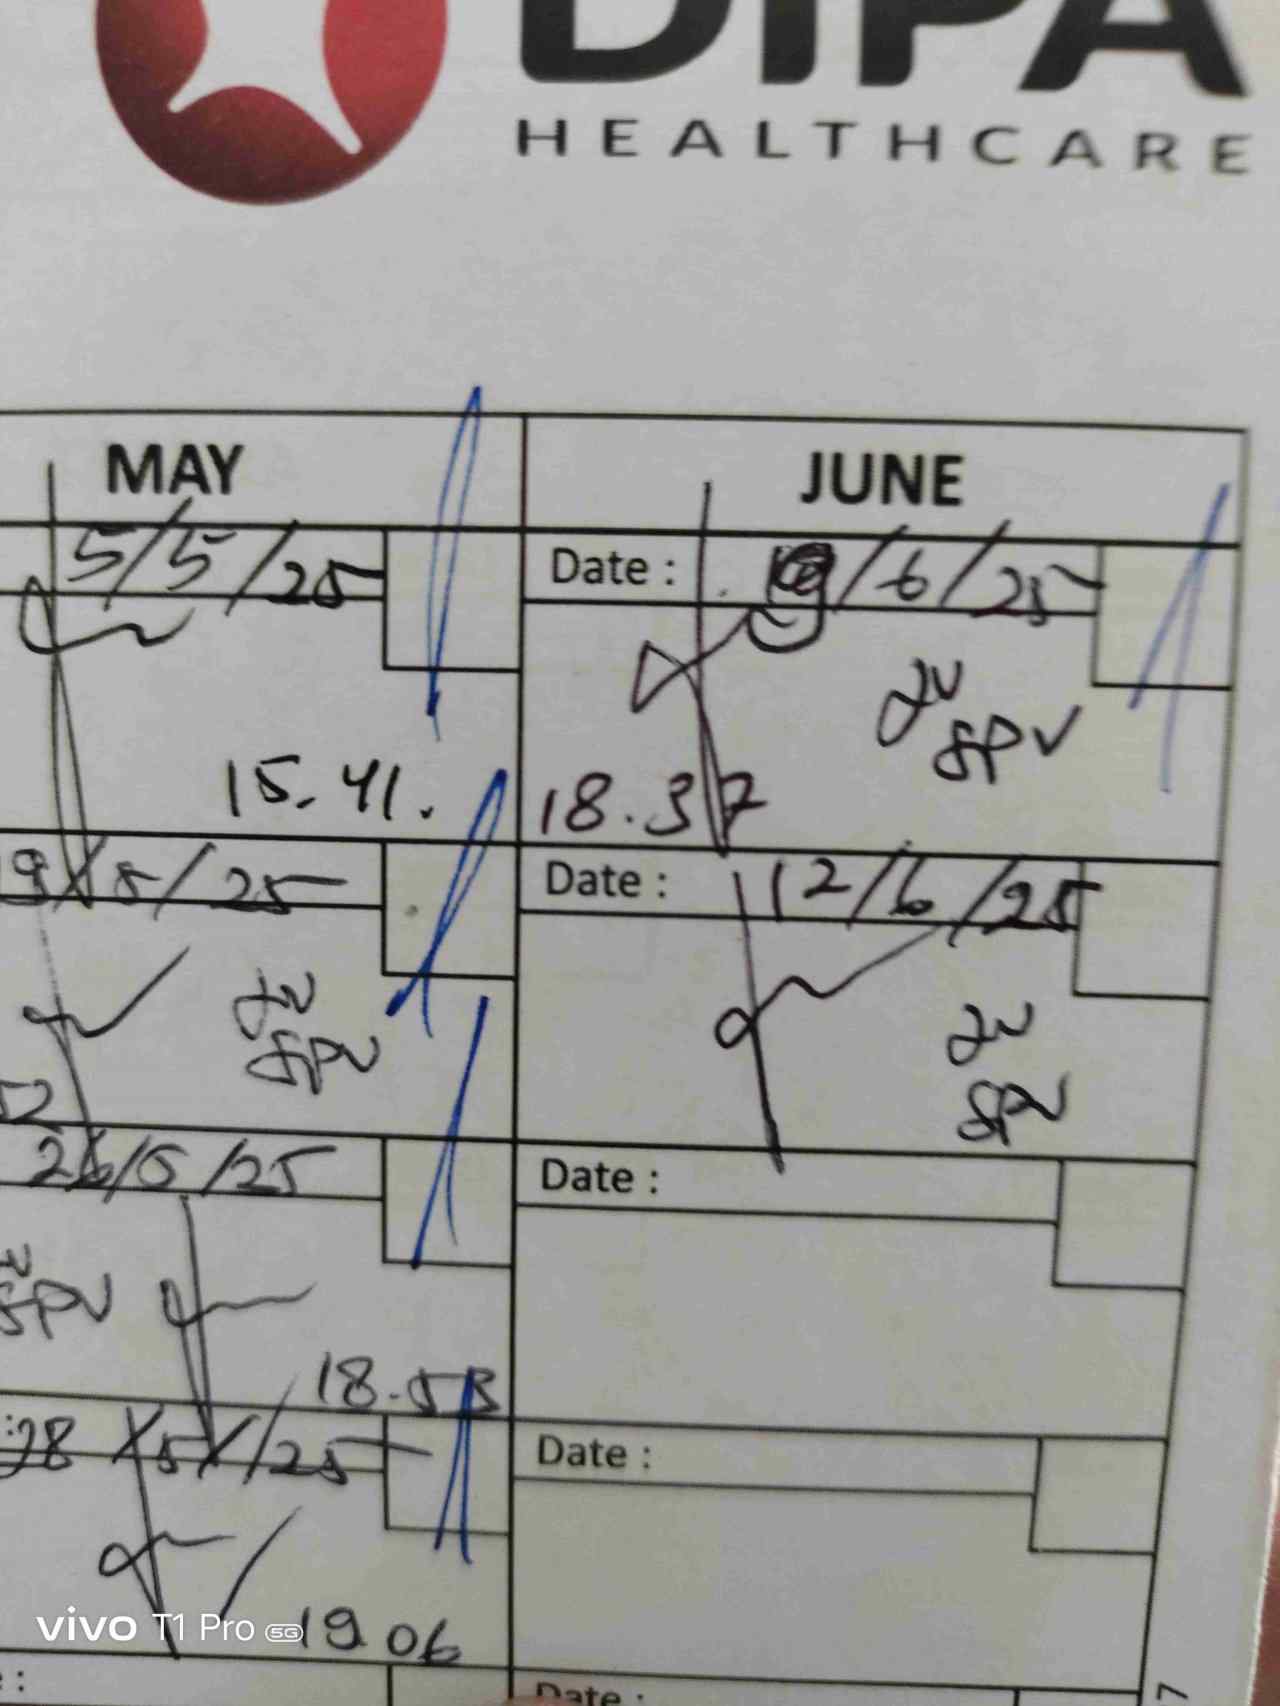 DIPA
HEALTHCARE
MAY
JUNE
5/5/25
Date : /6/25
SPV
15.41.
18.37
9/5/25
Date : 12/6/25
SPV
SPV
52
26/5/25
Date :
SPV
18.53
28/5/25
Date :
19 06
vivo T1 Pro 5G
Date :
7